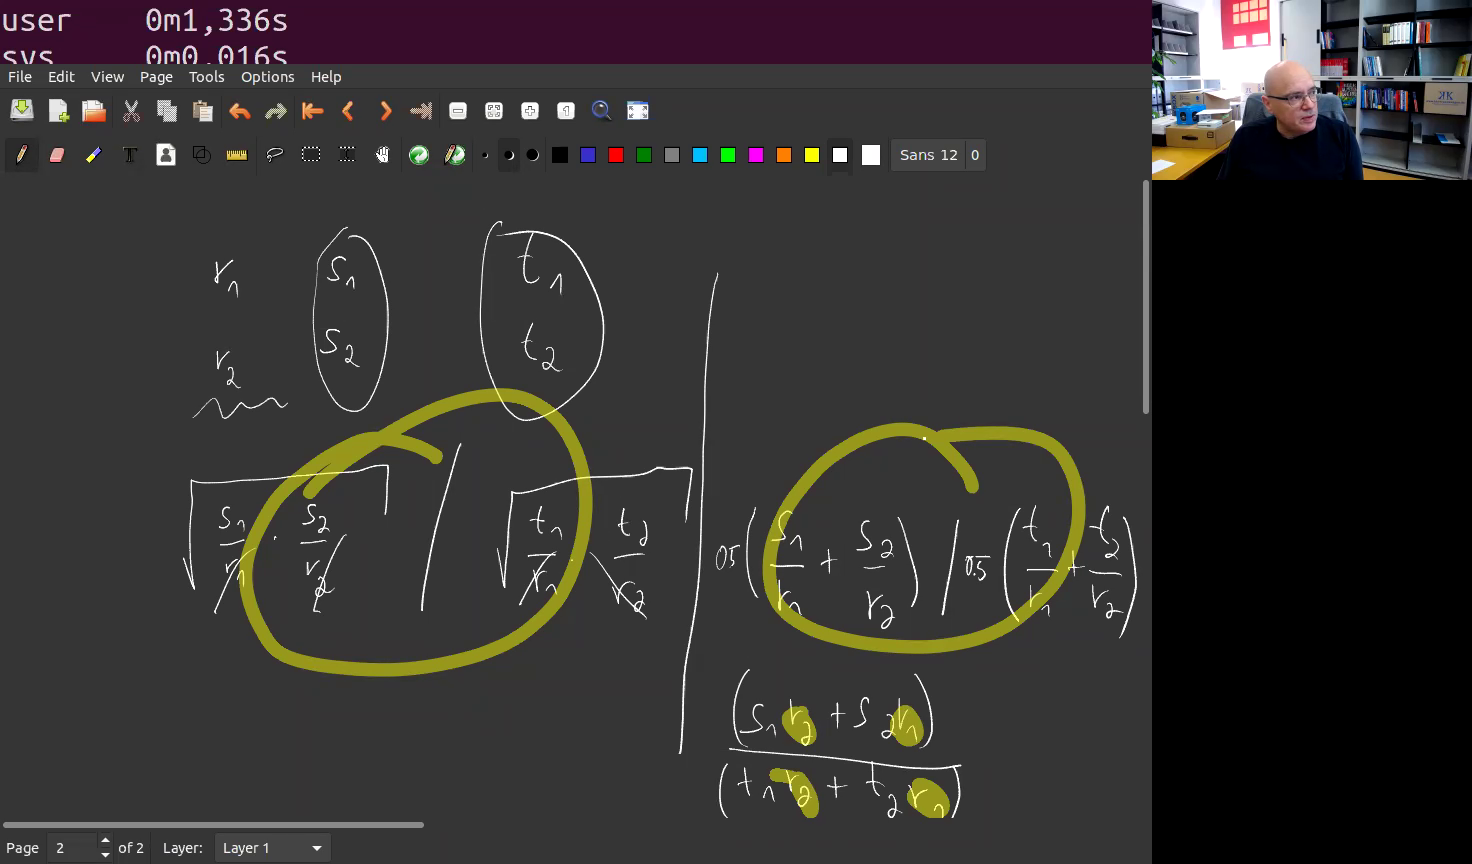 user 0m1,336s
sys 0m0,016s
File Edit View Page Tools Options Help
Sans 12 0
r1 s1 t1
s2 t2
r2
√ s1/r1 · s2/r2 / √ t1/r1 · t2/r2
0.5 ( s1/r1 + s2/r2 ) / 0.5 ( t1/r1 + t2/r2 )
(s1 r2 + s2 r1)
(t1 r2 + t2 r1)
Page 2 of 2 Layer: Layer 1